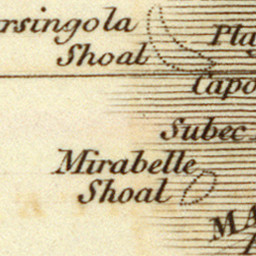 rsingola
Shoal
Pla
Capo
Subec
Mirabelle
Shoal
MA